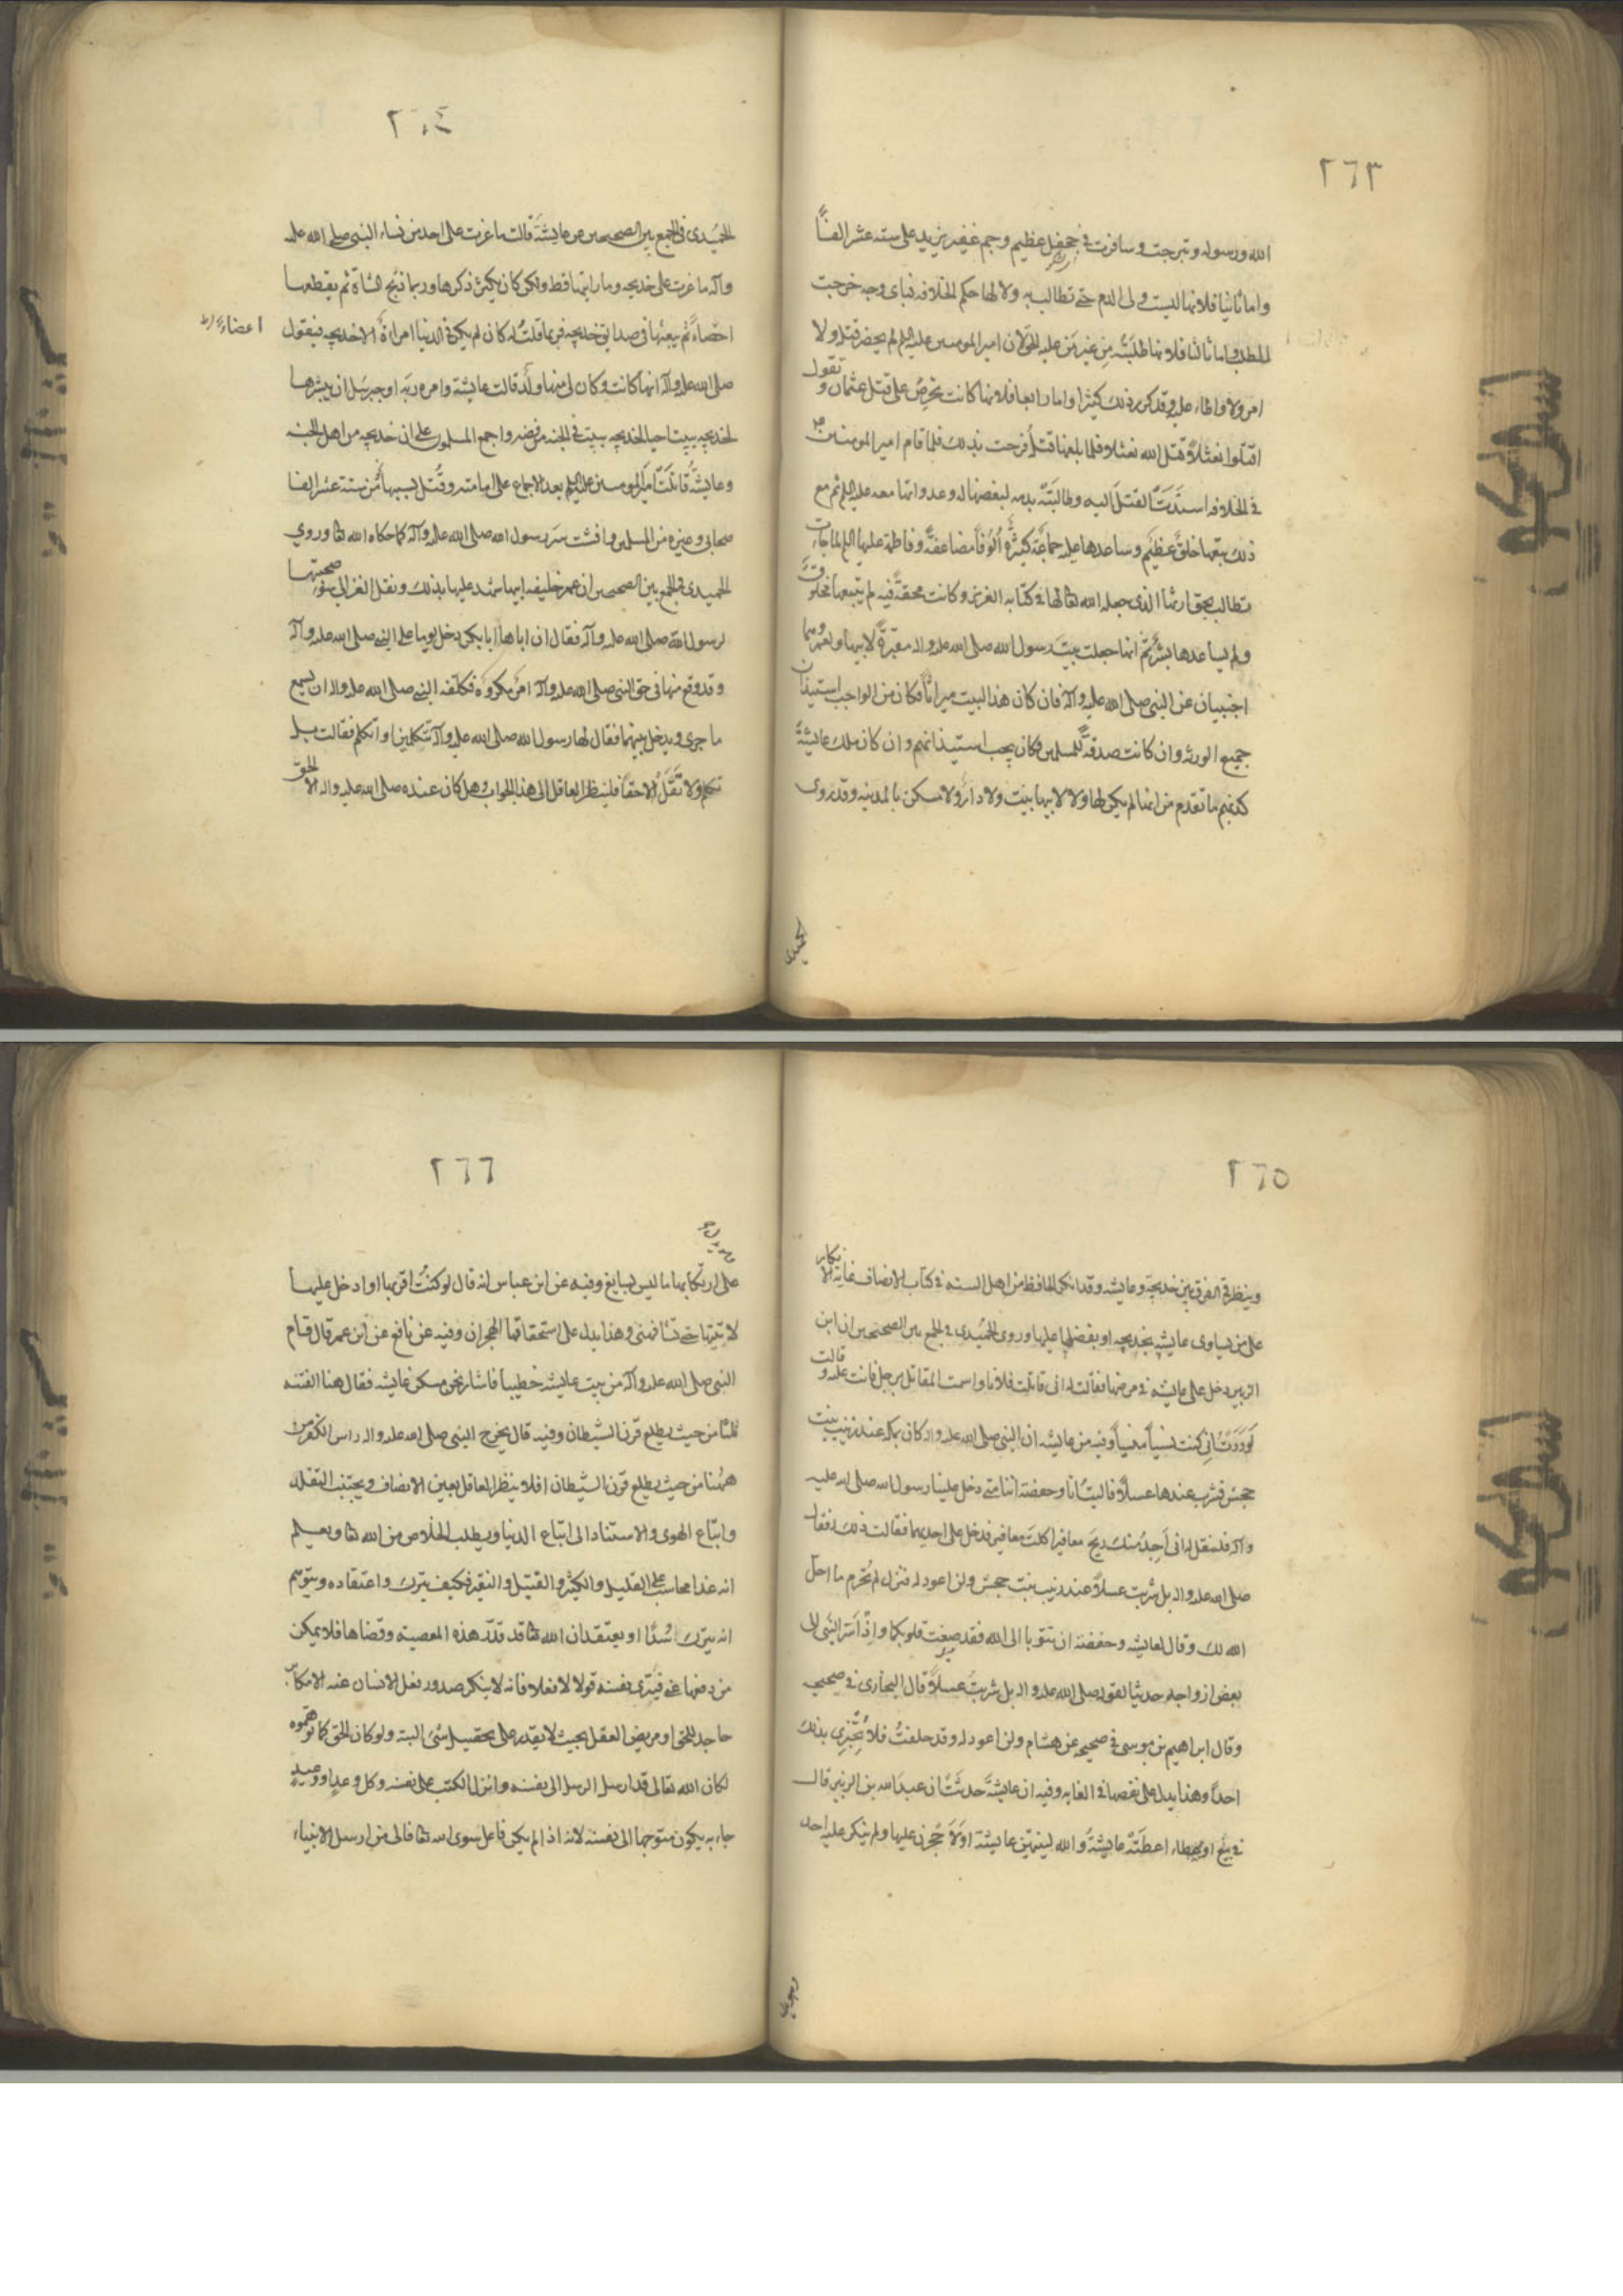 ٢٦٣
الله ورسوله وتبرجت وسافرت في جحفل عظيم وجم غفير يزيد على ستة عشر الفاً
واما ثانيا فلانها ليست ولى الدم حتى تطالب به ولا لها حكم الخلافة فباى وجه خرجت
للطلب واما ثالثا فلانها طلبته من غير من عليه الحق لان امير المومنين عليه السلم لم يحضر قتله ولا
امر ولا واطاء عليه وقد ذكر ذلك كثيرا واما رابعا فلانها كانت تحرص على قتل عثمان وتقول
اقتلوا نعثلاً قتل الله نعثلا فلما بلغها قتله فرحت بذلك فلما قام امير المومنين
في الخلافه اسندت القتل اليه وطالبته بدمه لبغضها له وعداوتها معه عليه السلم ثم مع
ذلك تبعها خلق عظيم وساعدها عليه جماعة كثيرة الوفاً مضاعفة وفاطمة عليها السلم لما جاءت
تطالب بحق ارثها الذى جعله الله تعا لها في كتابه العزيز وكانت محقة فيه لم يتبعها مخلوق
ولم يساعدها بشر ثم انها جعلت بيت رسول الله صلى الله عليه واله مقبرة لابيها ولعمر وهما
اجنبيان عن النبى صلى الله عليه وآله فان كان هذا البيت ميراثاً فكان من الواجب استيذان
جميع الورثه وان كانت صدقة للمسلمين فكان يجب استيذانهم وان كان ملك عايشة
كذبهم ما تقدم من انها لم يكن لها ولا لابيها بيت ولا دار ولا مسكن بالمدينه وقد روى
الحميدى
٢٦٤
الحميدى فى الجمع بين الصحيحين عن عايشة قالت ما غرت على احد من نساء النبى صلى الله عليه
وآله ما غرت على خديجه وما رايتها قط ولكن كان يكثر ذكرها وربما ذبح الشاة ثم يقطعها
اعضاء
ثم يبعثها فى صدايق خديجه فربما قلت له كان لم يكن فى الدنيا امراة الا خديجه فيقول
صلى الله عليه وآله انها كانت وكان لى منها ولد قالت عايشة وامره ربه او جبرئيل ان يبشرها
لخديجه بيتا حيا لخديجه ببيت فى الجنة من قصب واجمع المسلمون على ان خديجه من اهل الجنه
وعايشة قاتلت امير المومنين عليه السلم بعد الاجماع على امامته وقُتل بسببها نحو من ستة عشر الفا
صحابى وغيره من المسلمين وافشت سر رسول الله صلى الله عليه وآله كما حكاه الله تعا وروي
الحميدى فى الجمع بين الصحيحين ان عمر خليفه ابيها شهد عليها بذلك ونقل الغزالى سوء صحبتها
لرسول الله صلى الله عليه وآله فقال ان اباها ابا بكر دخل يوما على النبى صلى الله عليه وآله
وقد وقع منها فى حق النبى صلى الله عليه وآله امر مكروه فكلفه النبى صلى الله عليه واله ان يسمع
ما جرى ويدخل بينهما فقال لها رسول الله صلى الله عليه وآله تتكلمين او اتكلم فقالت بل
تكلم ولا تقل الا حقا فلينظر العاقل الى هذا الجواب وهل كان عنده صلى الله عليه واله الا الحق
٢٦٥
وينظر فى الفرق بين خديجة وعايشه وقد انكر الحافظ من اهل السنه فى كتاب الانصاف غاية الانكار
على من يساوى عايشه بخديجه او يفضلها عليها وروى الحميدى فى الجمع بين الصحيحين ان ابن
الزبير دخل على عايشه فى مرضها فقالت له انى قاتلت فلانا واسمت المقاتل برجل قاتلت عليه وقالت
لوددت انى كنت نسيا منسياً وفيه عن عايشه ان النبى صلى الله عليه واله كان يمكث عند زينب بنت
جحش فشرب عندها عسلاً فاليت انا وحفصة ايتنا متى دخل علينا رسول الله صلى الله عليه
وآله فلتقل له انى اجد منك ريح مغافير اكلت مغافير فدخل على احديهما فقالت ذلك فقال
صلى الله عليه واله بل شربت عسلاً عند زينب بنت جحش ولن اعود له فنزل لم تحرم ما احل
الله لك وقال لعايشه وحفصة ان تتوبا الى الله فقد صغت قلوبكما واذ اسر النبى الى
بعض ازواجه حديثا لقوله صلى الله عليه واله بل شربت عسلاً قال البخارى فى صحيحه
وقال ابراهيم بن موسى فى صحيحه عن هشام ولن اعود له وقد حلفت فلا تخبرى بذلك
احداً وهذا يدل على نقصها فى الغايه وفيه ان عايشة حدثت ان عبد الله بن الزبير قال
فى بيع او عطاء اعطته عايشة والله لينتهين عايشة او لاحجرن عليها ولم ينكر عليه احد
٢٦٦
على ارتكابها ما ليس بسايغ وفيه عن ابن عباس انه قال لو كنت اقربها او ادخل عليها
لاتيتها حتى تشافهنى وهذا يدل على استحقاقها الهجران وفيه عن نافع عن ابن عمر قال قام
النبى صلى الله عليه وآله من بيت عايشه خطيباً فاشار نحو مسكن عايشه فقال هنا الفتنه
ثلثا من حيث يطلع قرن الشيطان وفيه قال يخرج النبى صلى الله عليه واله راس الكفر من
ههنا من حيث يطلع قرن الشيطان افلا ينظر العاقل بعين الانصاف ويجتنب التقليد
واتباع الهوى والاستناد الى اتباع الدنيا ويطلب الخلاص من الله تعا ويعلم
انه غدا محاسب على القليل والكثير والفتيل والنقير فكيف يترك واعتقاده ويتوهم
انه يترك سُدًا او يعتقد ان الله تعا قد قدر هذه المعصية وقضاها فلا يمكن
من دفعها عنه فيبرى نفسه قولا لا فعلا فانه لا ينكر صدور فعل الانسان عنه الا مكابر
جاحد للحق او مريض العقل بحيث لا يقدر على تحصيل شئ البته ولو كان الحق كما توهموه
لكان الله تعالى قد ارسل الرسل الى نفسه وانزل الكتب على نفسه وكل وعدٍ او وعيد
جاء به يكون متوجها الى نفسه لانه اذا لم يكن فاعل سوى الله تعا فالى من ارسل الانبياء